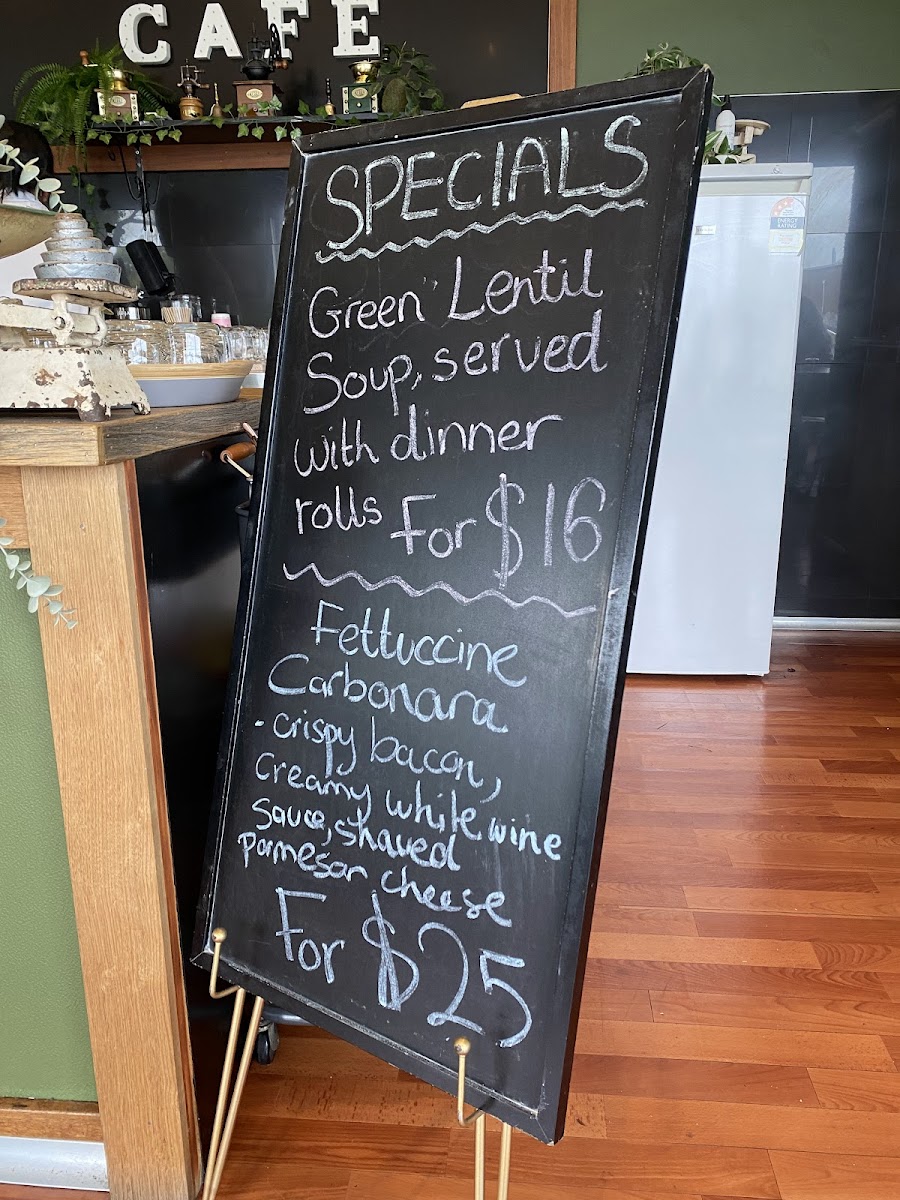 CAFE
SPECIALS
Green Lentil
Soup, served
with dinner
rolls For $16
Fettuccine
Carbonara
- crispy bacon,
Creamy white wine
Sauce, shaved
Parmesan cheese
For $25
ENERGY
RATING